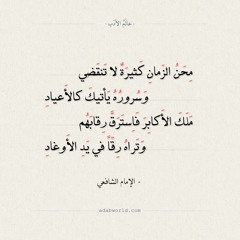 - عالم الأدب -
مِحَنُ الزَمانِ كَثيرَةٌ لا تَنقَضي
وَسُرورُهُ يَأتيكَ كَالأَعيادِ
مَلَكَ الأَكابِرَ فَاِستَرَقَّ رِقابَهُم
وَتَراهُ رِقّاً في يَدِ الأَوغادِ
- الإمام الشافعي
adabworld.com